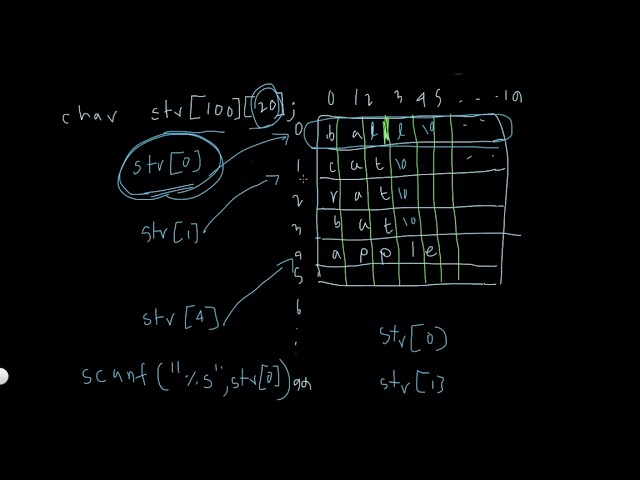 0 1 2 3 4 5 . . . . 19
char str[100][20];
0 b a l l \0 - -
str[0]
1 c a t \0 - -
2 r a t \0
str[1] 3 b a t \0
4 a p p l e
5
6
str[4]
.
.
str[0]
scanf("%s",str[0]) 99 str[1]